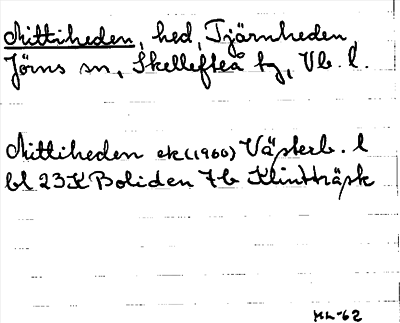 Mittiheden, hed, Tjärnheden,
Jörns sn, Skellefteå tg, Vb. l.
Mittiheden ek (1960) Västerb. l
bl 23K Boliden 7b Klintträsk
HL-62